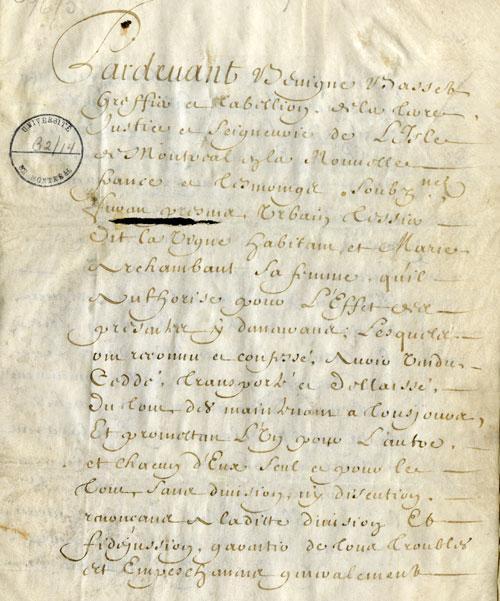 Pardevant Benigne Basset
Greffier et Tabellion, dela terre
Justice et Seigneurie de L'Isle
de Montreal en la Nouvelle
france et tesmoings Soubz nez
furent presens Urbain Tessier
dit la Vigne habitant, et Marie
Archambaut sa femme, quil
Authorise pour L'Effet des
presentes y demeurans; Lesquels
ont reconnu et confessé, Avoir Vendu,
Ceddé, transporté et Dellaissé,
Du tout des maintenant a tousjours,
Et promettent L'Un pour L'autre,
et chacun d'Eux seul et pour le
tout, sans division, ny discution,
renonceans a ladite division Et
fidejussion, garantir de tous troubles
et Empeschemens generalement
UNIVERSITÉ
32/14
DE MONTRÉAL